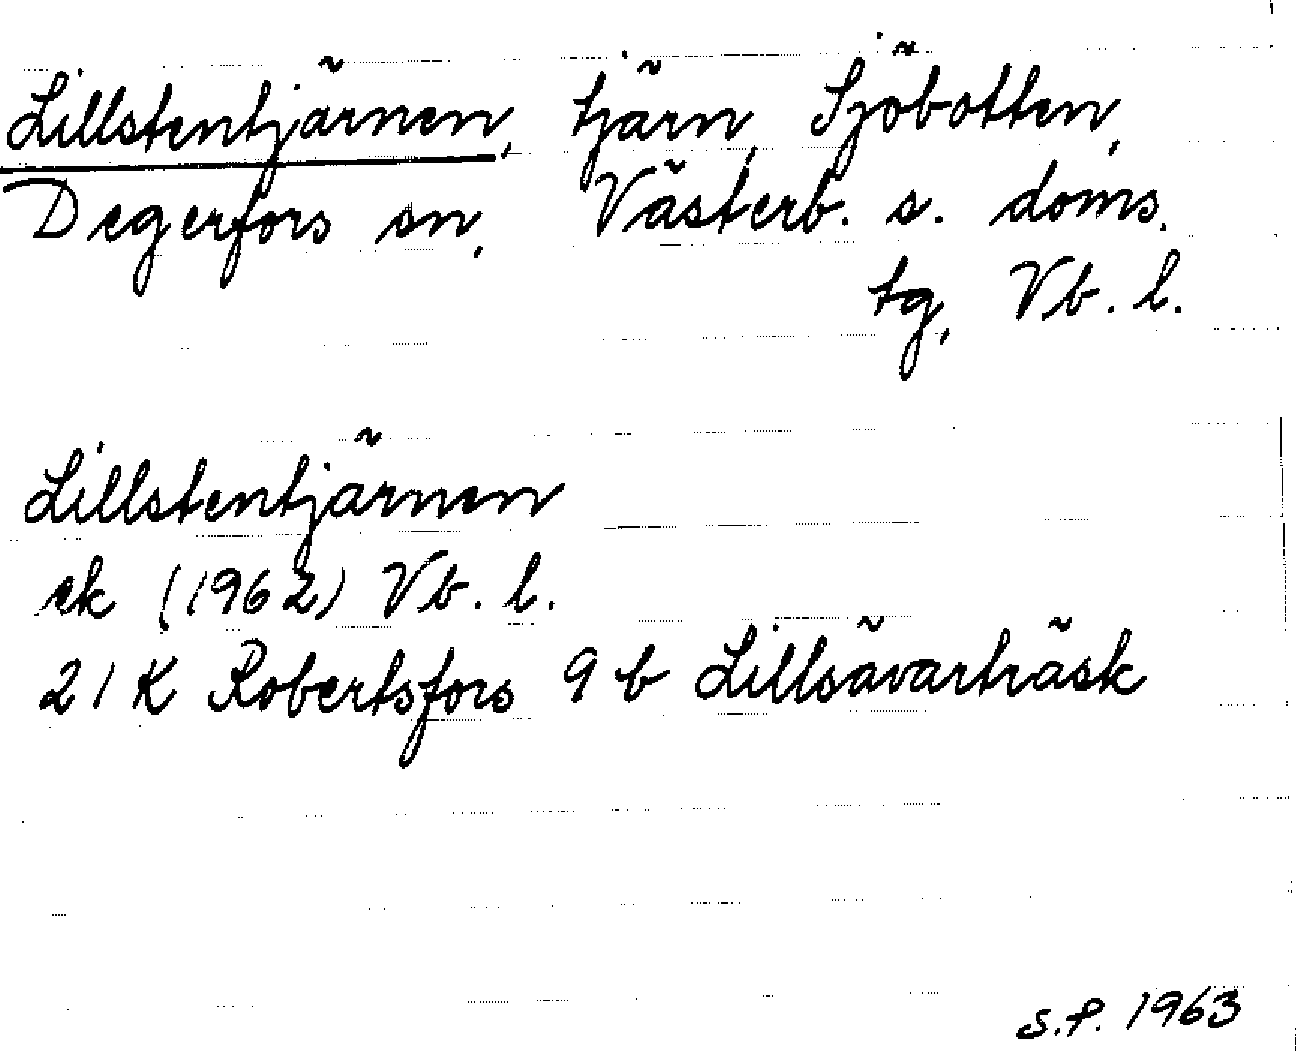 Lillstentjärnen, tjärn, Sjöbotten,
Degerfors sn, Västerb. s. doms.
tg, Vb. l.
Lillstentjärnen
ek (1962) Vb. l.
21 K Robertsfors 9 b Lillsävarträsk
S.P. 1963